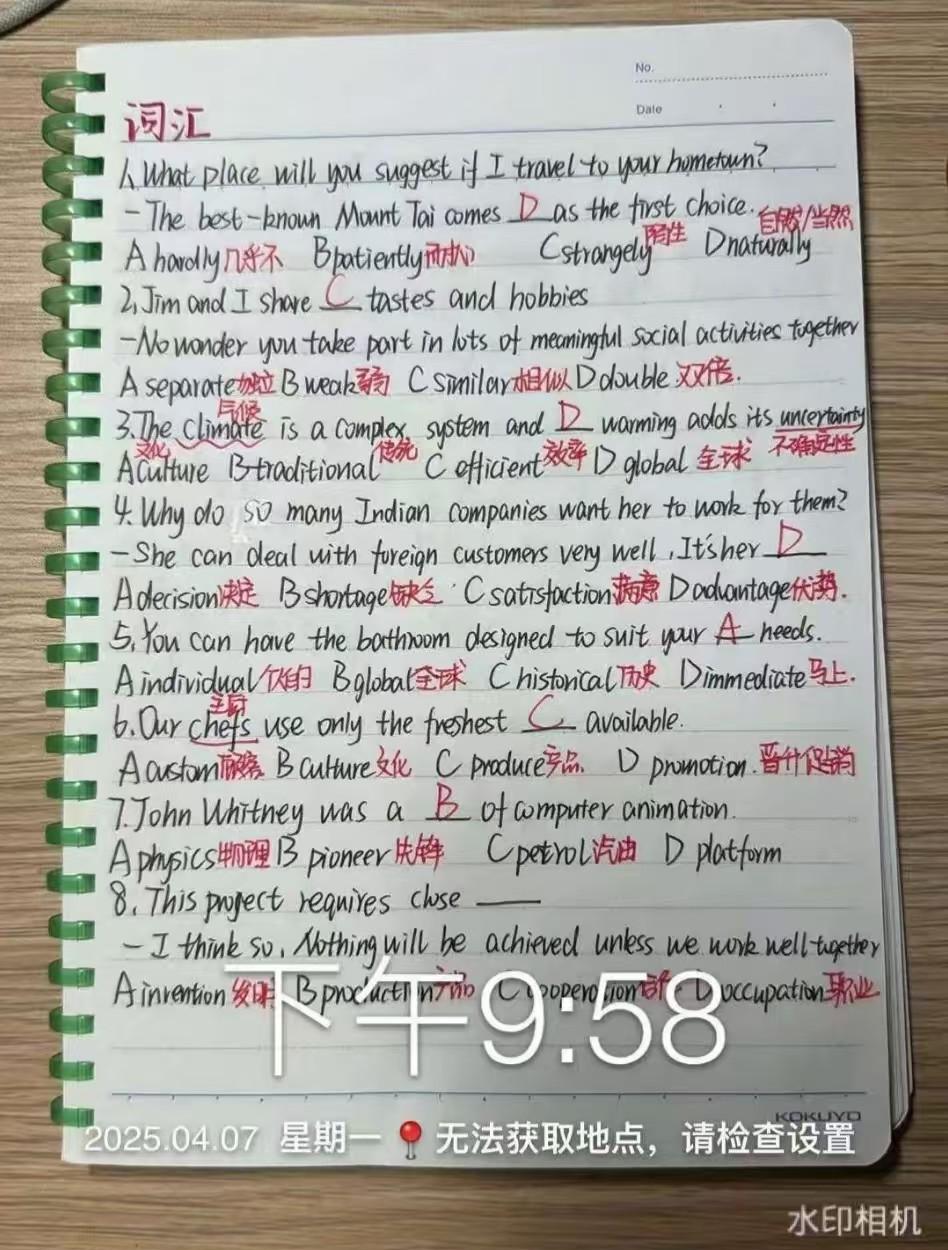 No.
Date
词汇
1. What place will you suggest if I travel to your hometown?
- The best-known Mount Tai comes D as the first choice.
A hardly 几乎不 B patiently 耐心 C strangely 陌生 D naturally 自然/当然
2, Jim and I share C tastes and hobbies
-No wonder you take part in lots of meaningful social activities together
A separate 独立 B weak 弱 C similar 相似 D double 双倍.
3. The climate 气候 is a complex system and D warming adds its uncertainty 不确定性
A culture 文化 B traditional 传统 C efficient 效率 D global 全球
4. Why do so many Indian companies want her to work for them?
- She can deal with foreign customers very well. It's her D
A decision 决定 B shortage 缺乏 C satisfaction 满意 D advantage 优势.
5. You can have the bathroom designed to suit your A needs.
A individual 个人的 B global 全球 C historical 历史 D immediate 马上.
6. Our chefs 主厨 use only the freshest C available.
A custom 顾客 B culture 文化 C produce 产品 D promotion. 晋升促销
7. John Whitney was a B of computer animation.
A physics 物理 B pioneer 先锋 C petrol 汽油 D platform
8. This project requires close
- I think so. Nothing will be achieved unless we work well together
A invention 发明 B production 产品 C cooperation D occupation 职业
下午9:58
KOKUYO
2025.04.07 星期一 无法获取地点，请检查设置
水印相机